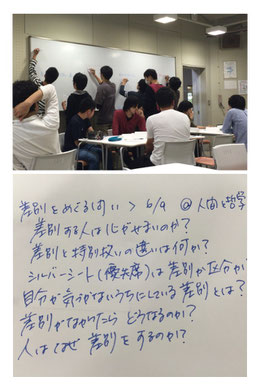 差別をめぐる問い > 6/9 @人間と哲学
差別する人は心がせまいのか？
差別と特別扱いの違いは何か？
シルバーシート(優先席)は差別か区分か？
自分が気づかないうちにしている差別とは？
差別がなかったら どうなるのか？
人はなぜ 差別をするのか？